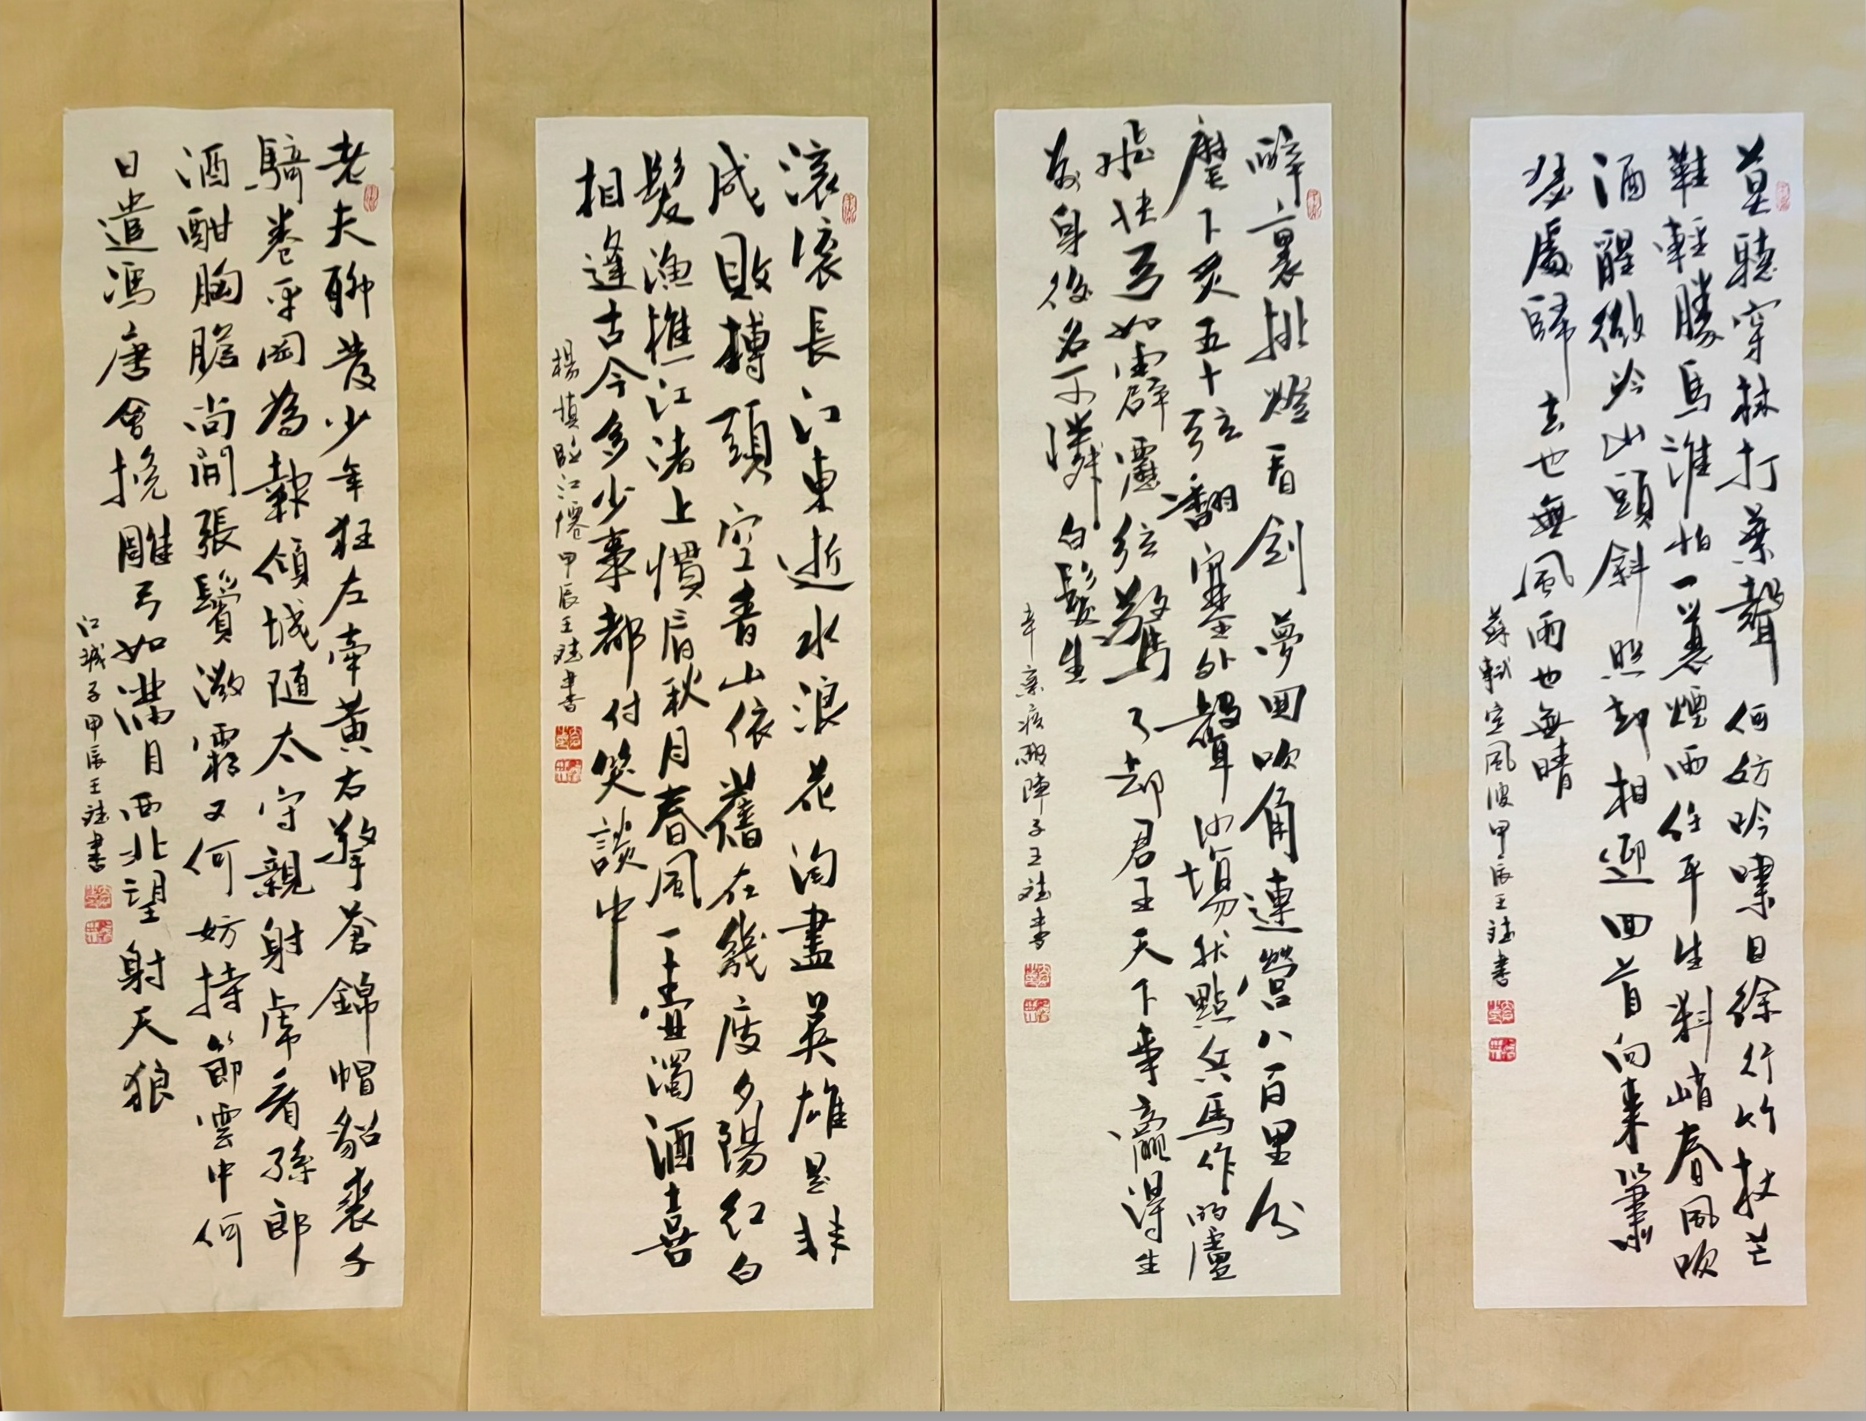 莫聽穿林打葉聲何妨吟嘯且徐行竹杖芒
鞋輕勝馬誰怕一蓑煙雨任平生料峭春風吹
酒醒微冷山頭斜照却相迎回首向來蕭
瑟處歸去也無風雨也無晴
蘇軾定風波甲辰王斌書
醉裏挑燈看劍夢回吹角連營八百里分
麾下炙五十弦翻塞外聲沙場秋點兵馬作的盧
飛快弓如霹靂弦驚了却君王天下事贏得生
前身後名可憐白髮生
辛棄疾破陣子王斌書
滾滾長江東逝水浪花淘盡英雄是非
成敗轉頭空青山依舊在幾度夕陽紅白
髮漁樵江渚上慣看秋月春風一壺濁酒喜
相逢古今多少事都付笑談中
楊慎臨江僊甲辰王斌書
老夫聊發少年狂左牽黃右擎蒼錦帽貂裘千
騎卷平岡為報傾城隨太守親射虎看孫郎
酒酣胸膽尚開張鬢微霜又何妨持節雲中何
日遣馮唐會挽雕弓如滿月西北望射天狼
江城子甲辰王斌書